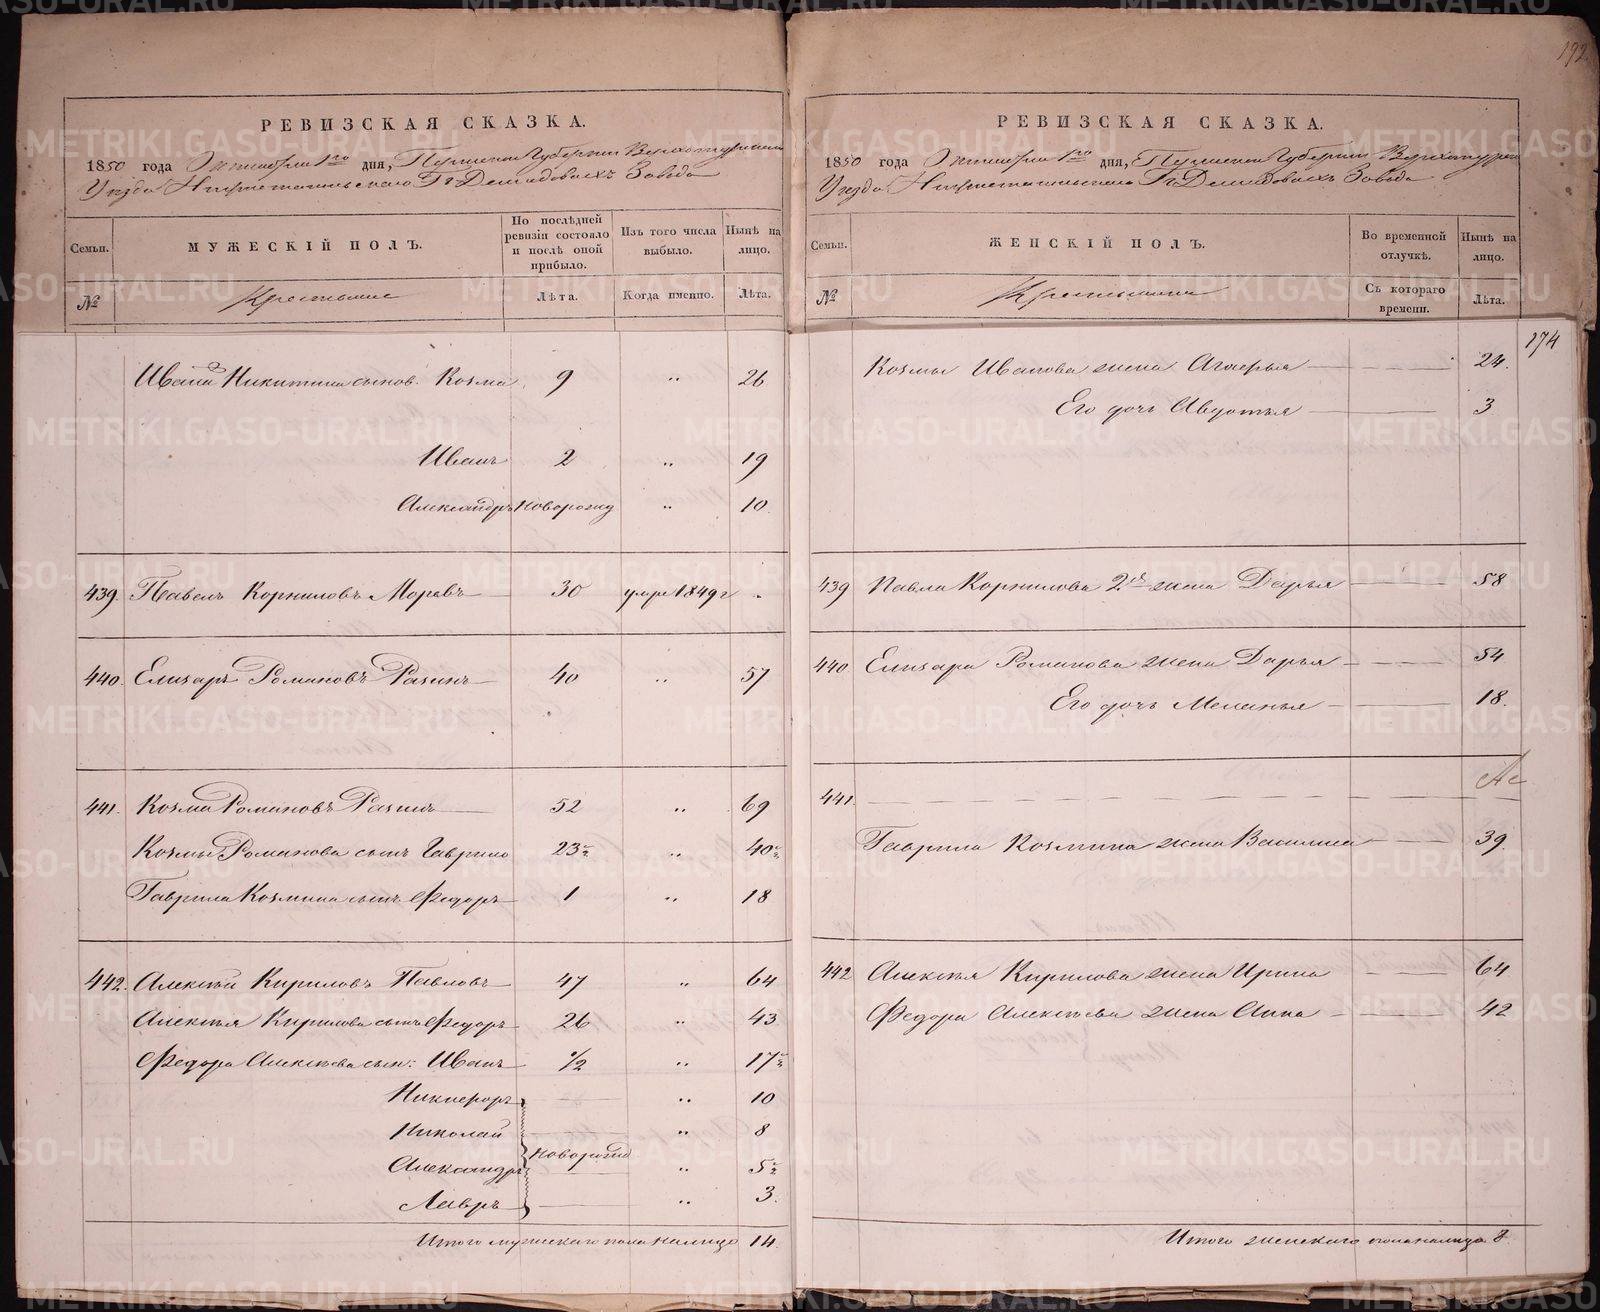 РЕВИЗСКАЯ СКАЗКА.
1850 года Октября 1го дня, Пермской Губерніи Верхотурскаго
Уѣзда Нижнетагильскаго Гг Демидовыхъ Завода
Семьи. МУЖЕСКІЙ ПОЛЪ. По послѣдней ревизіи состояло и послѣ оной прибыло. Изъ того числа выбыло. Нынѣ на лицо.
№ Крестьяне Лѣта. Когда именно. Лѣта.
Ивана Никитина сынов. Козма 9 " 26
Иванъ 2 " 19
Александръ новорожд " 10
439. Павелъ Корниловъ 30 умре 1849 г
440. Елизаръ Романовъ Разинъ 40 " 57
441. Козма Романовъ Разинъ 52 " 69
Козмы Романова сынъ Гаврило 23 ½ " 40 ½
Гаврила Козмина сынъ Федоръ 1 " 18
442. Алексѣй Кириловъ Павловъ 47 " 64
Алексѣя Кирилова сынъ Федоръ 26 " 43
Федора Алексѣева сын: Иванъ ½ " 17 ½
Никифоръ " 10
Николай " 8
новорожд
Александръ " 5 ½
Лавръ " 3.
Итого мужескаго пола налицо 14.
192
РЕВИЗСКАЯ СКАЗКА.
1850 года Октября 1го дня, Пермской Губерніи Верхотурскаго
Уѣзда Нижнетагильскаго Гг Демидовыхъ Завода
Семьи. ЖЕНСКІЙ ПОЛЪ. Во временной отлучкѣ. Нынѣ на лицо.
№ Крестьянки Съ котораго времени. Лѣта.
174
Козмы Иванова жена Агафья 24.
Его дочь Авдотья 3
439 Павла Корнилова 2я жена Дарья 58
440 Елизара Романова жена Дарья 54
Его дочь Меланья 18.
441.
Гаврила Козмина жена Василиса 39
442 Алексѣя Кирилова жена Ирина 64
Федора Алексѣева жена Анна 42
Итого женскаго пола налицо 8
METRIKI.GASO-URAL.RU